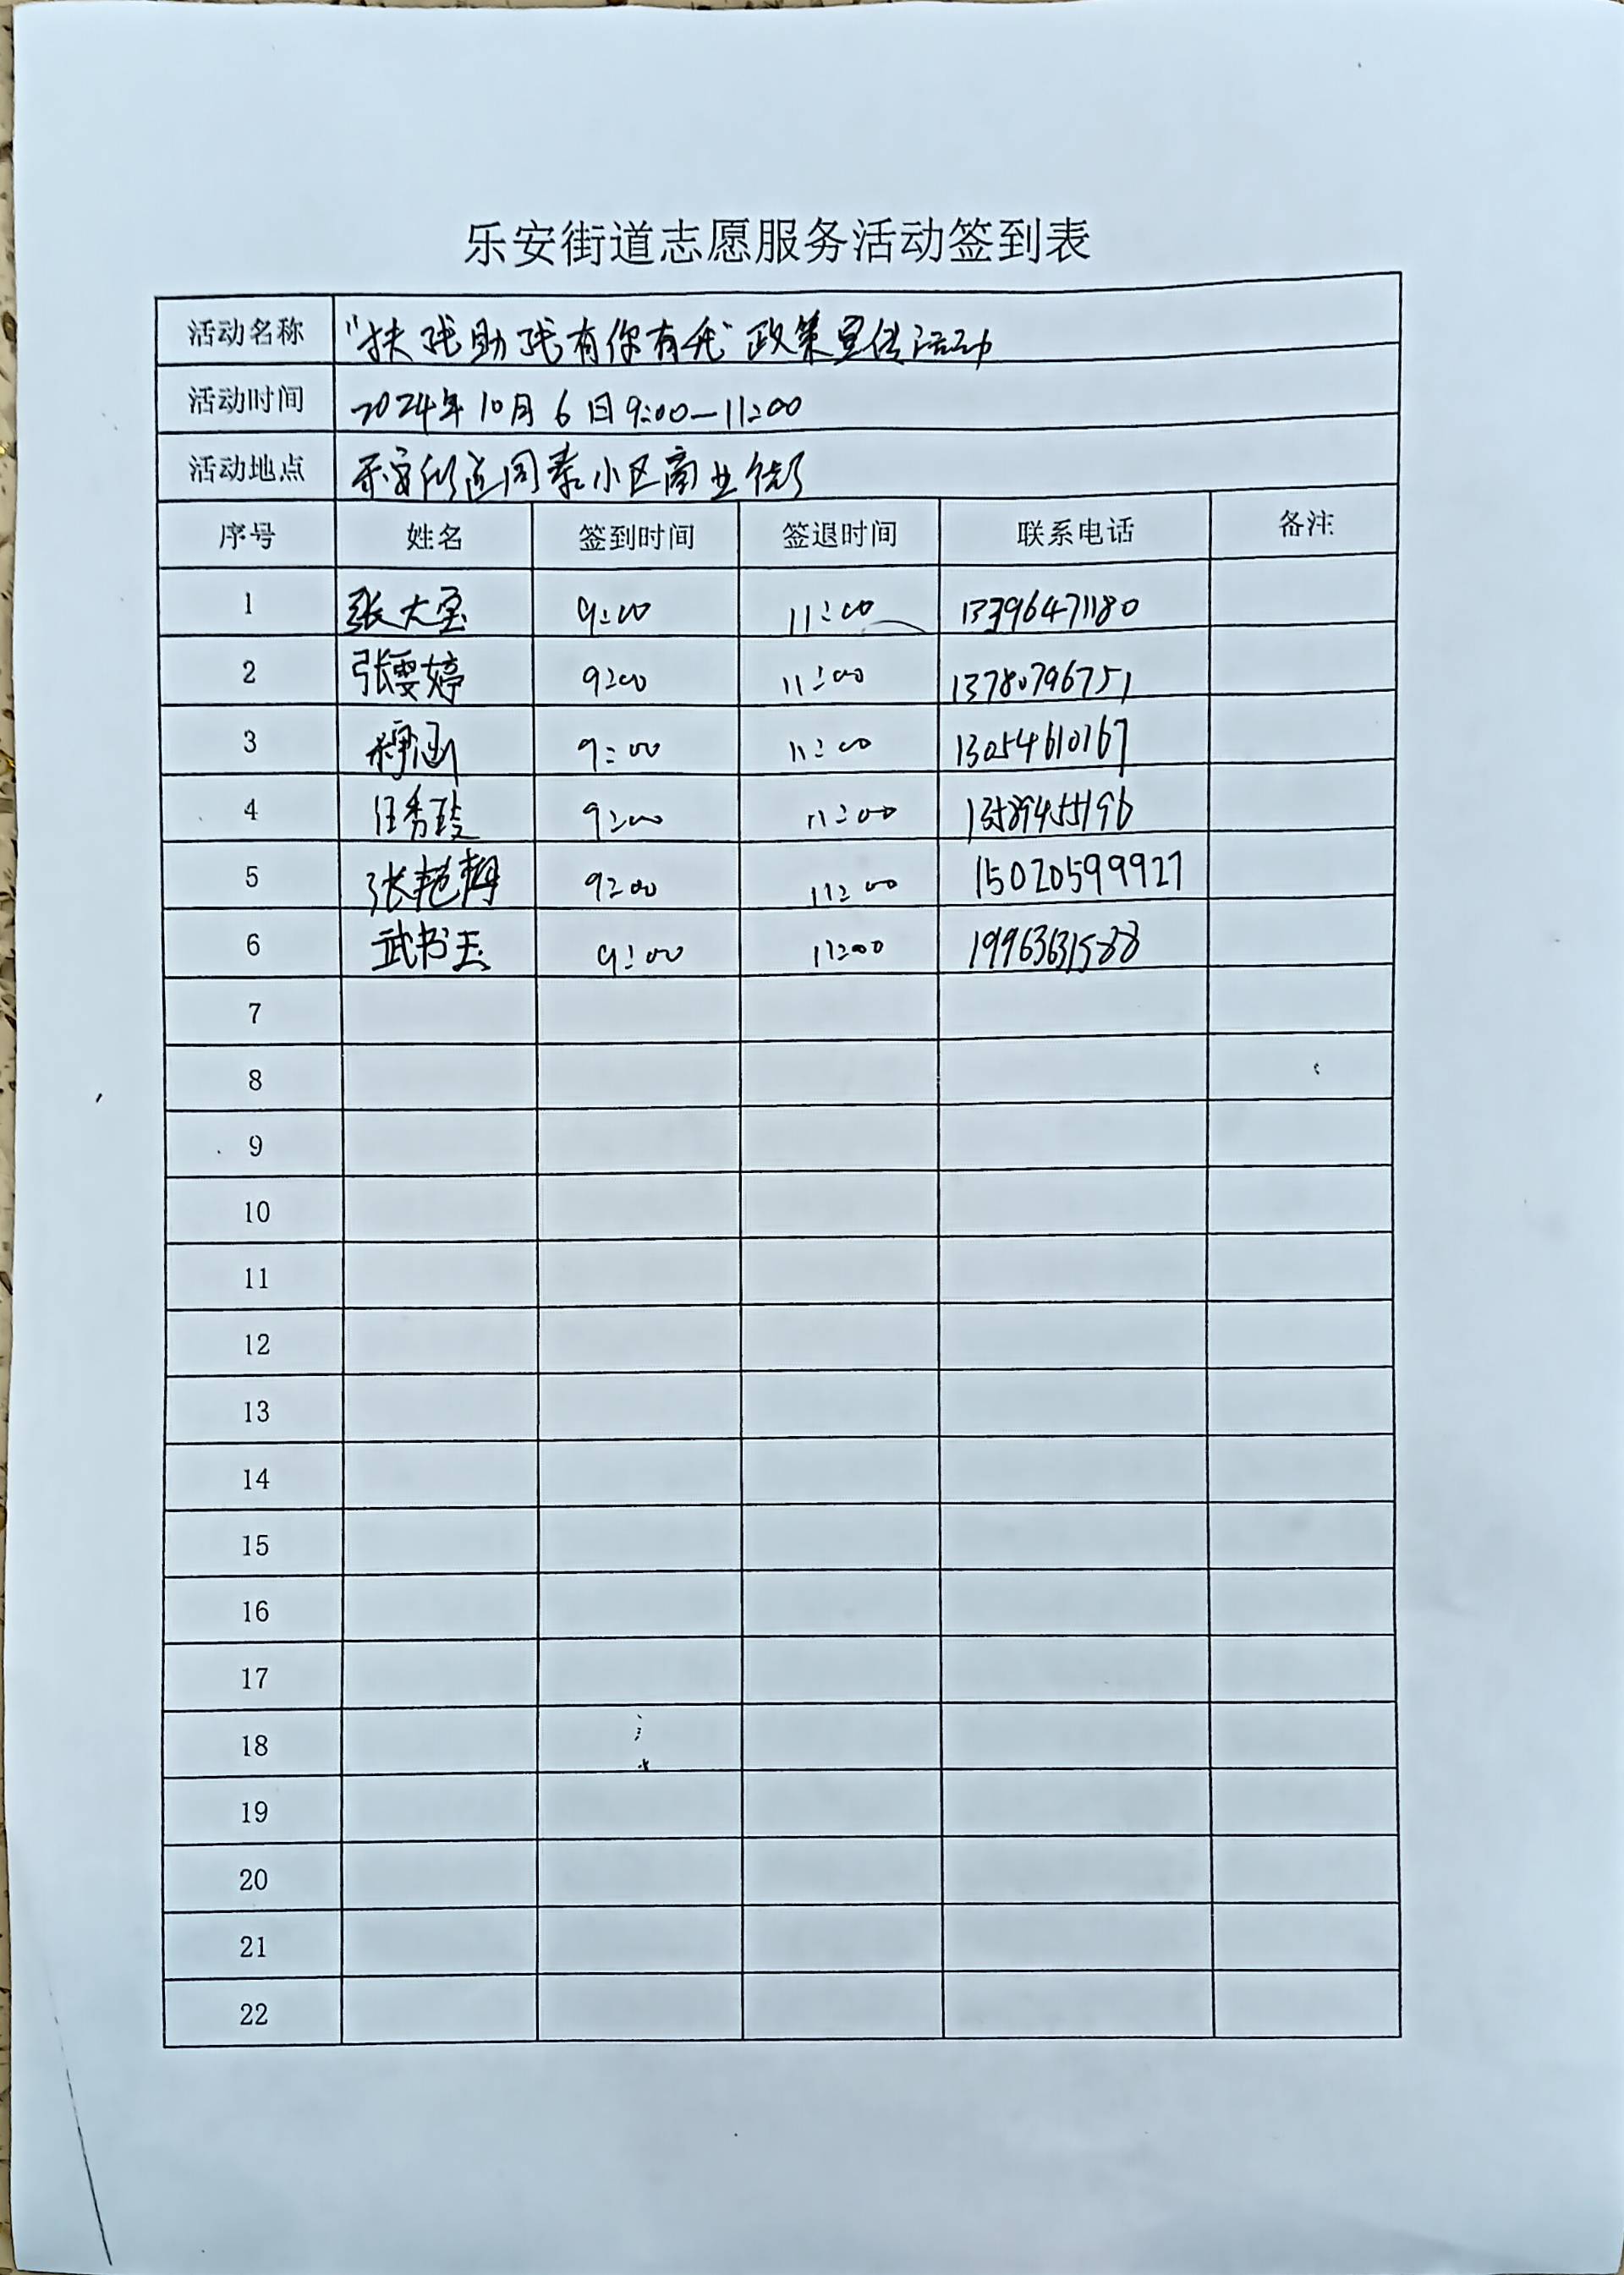 乐安街道志愿服务活动签到表
活动名称 "扶残助残有你有我"政策宣传活动
活动时间 2024年10月6日9:00—11:00
活动地点 乐安街道同泰小区商业街
序号 姓名 签到时间 签退时间 联系电话 备注
1 张大宝 9:00 11:00 13396471180
2 张雯婷 9:00 11:00 13780796751
3 涵 9:00 11:00 13054610167
4 任秀玲 9:00 11:00 13589455196
5 张艳 9:00 11:00 15020599927
6 武书玉 9:00 11:00 19963631588
7
8
9
10
11
12
13
14
15
16
17
18
19
20
21
22